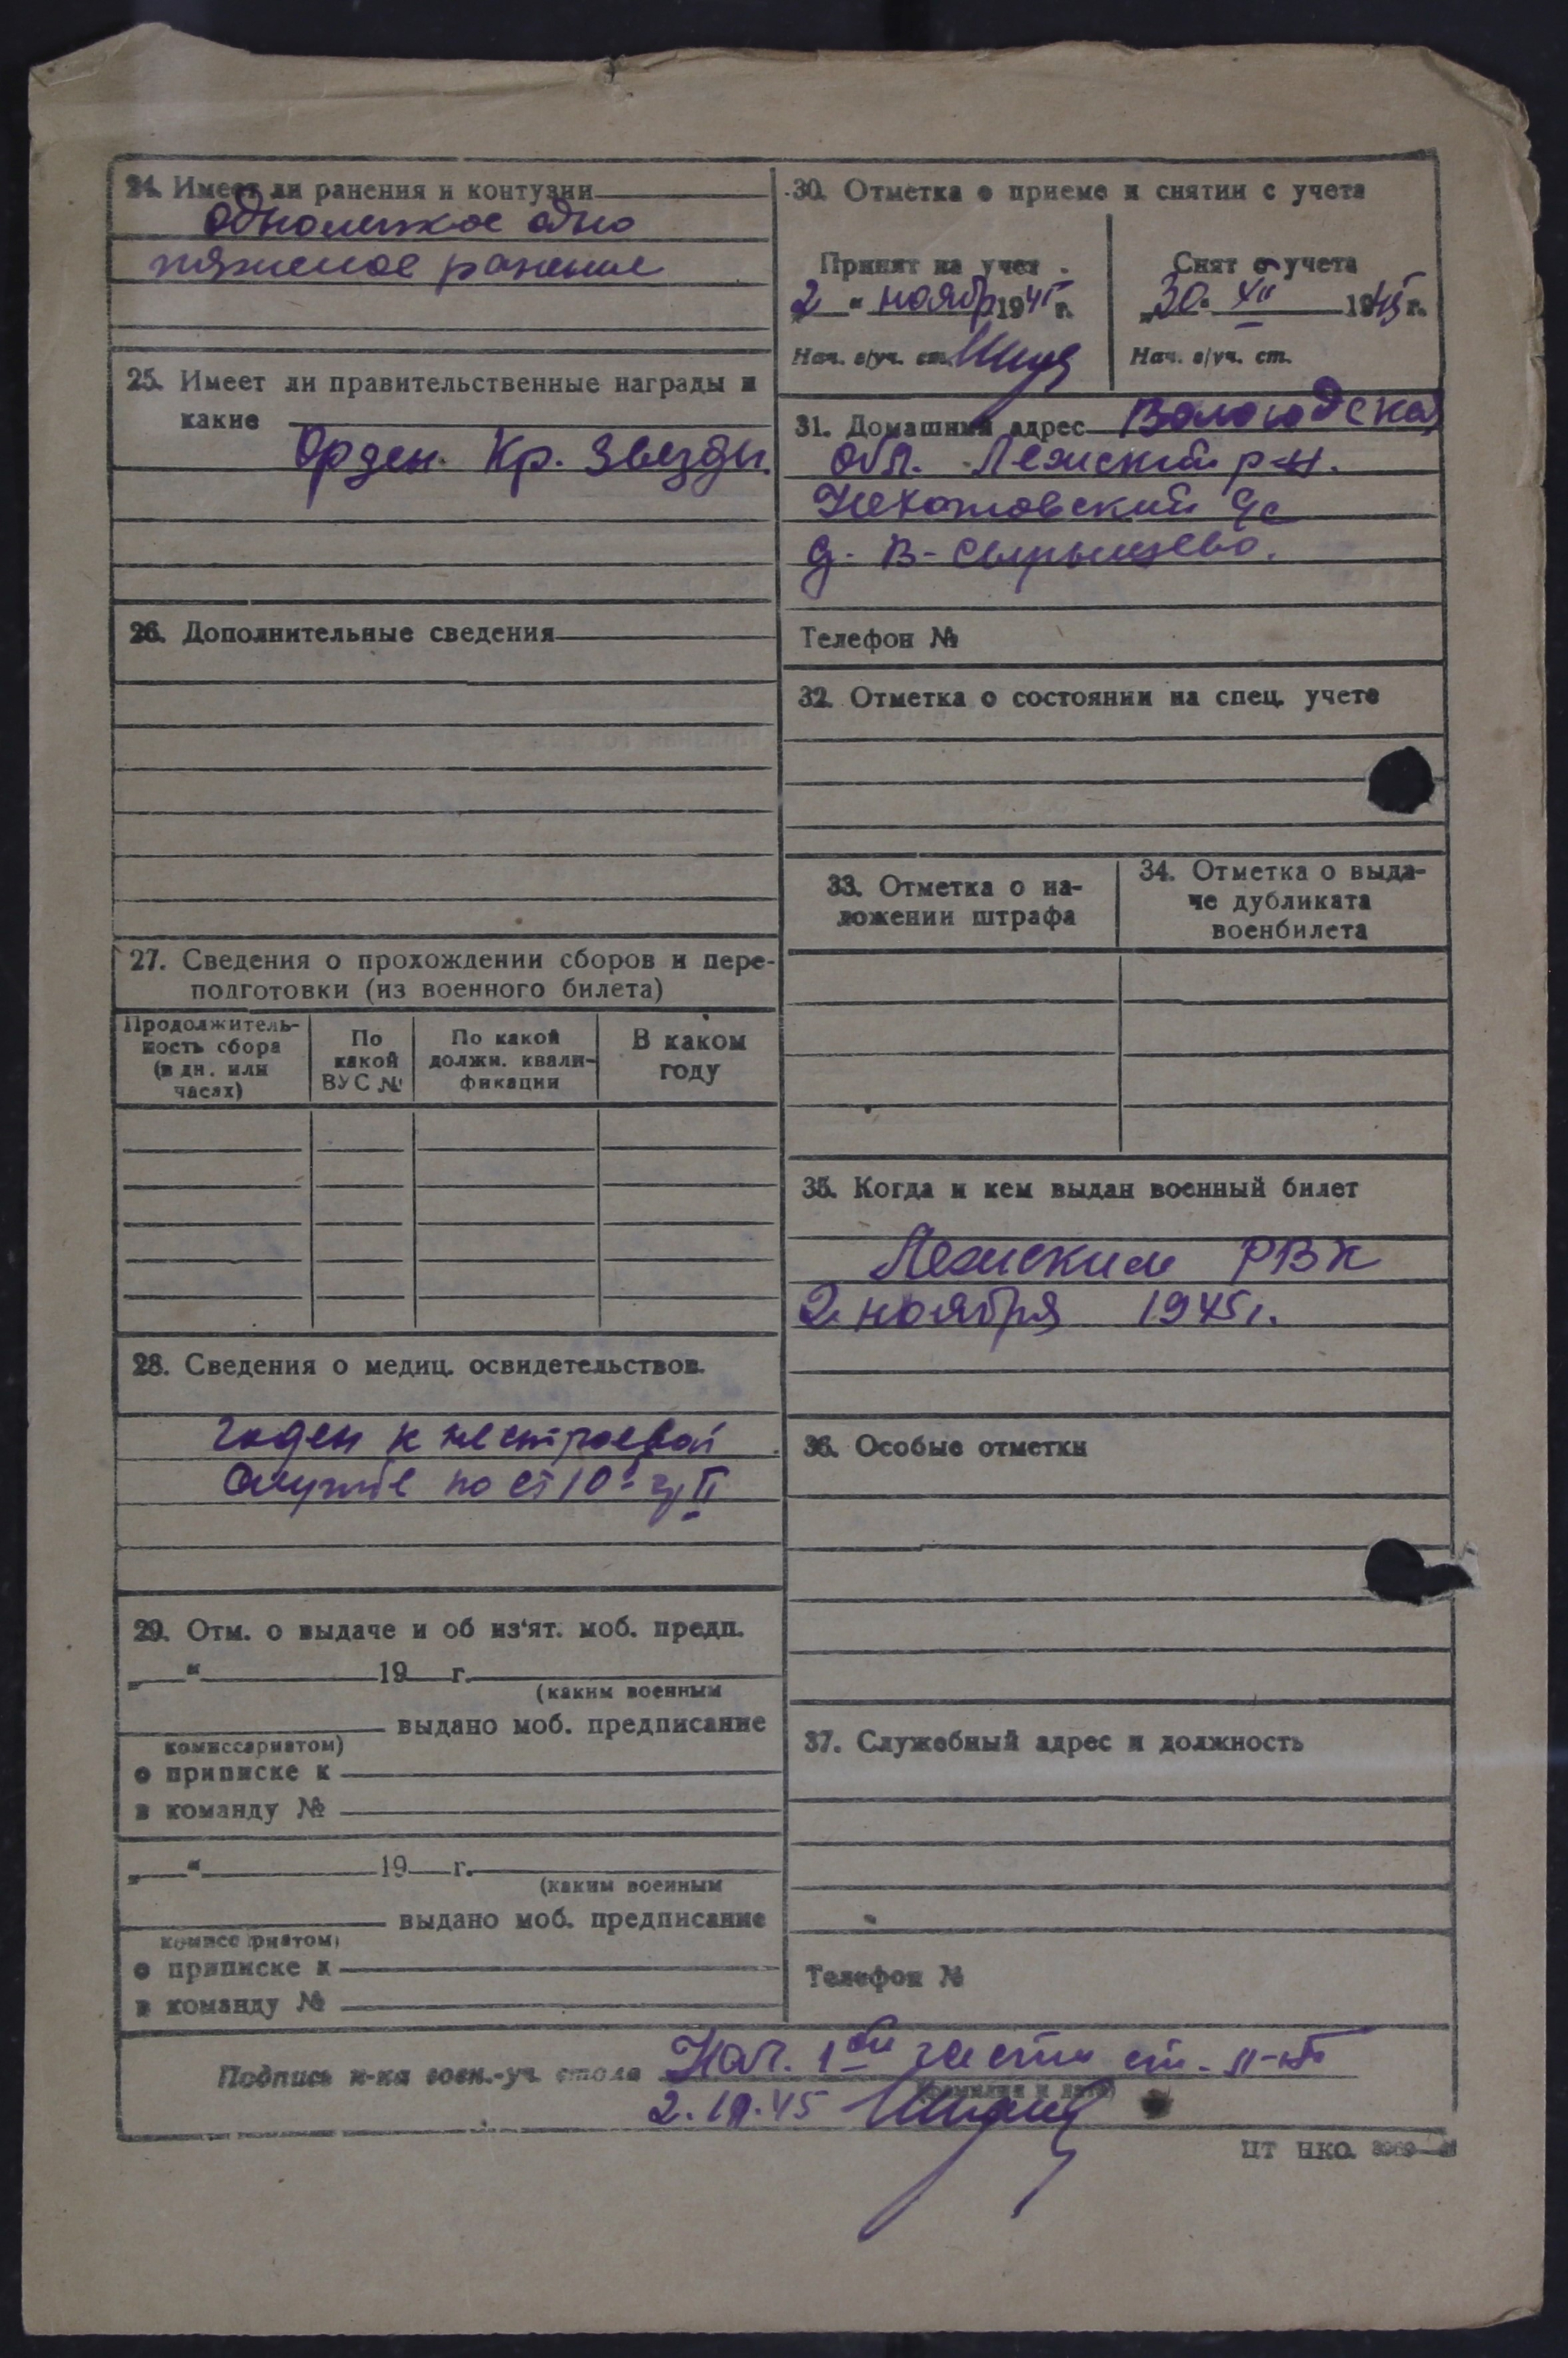 24. Имеет ли ранения и контузии
одно легкое одно
тяжелое ранение
25. Имеет ли правительственные награды и
какие
Орден Кр. Звезды.
26. Дополнительные сведения
27. Сведения о прохождении сборов и пере-
подготовки (из военного билета)
Продолжитель-
ность сбора
(в дн. или
часах)
По
какой
ВУС №
По какой
должн. квали-
фикации
В каком
году
28. Сведения о медиц. освидетельствов.
Годен к нестроевой
службе по ст 10 гр II
29. Отм. о выдаче и об из'ят. моб. предп.
„ “ 19 г.
(каким военным
выдано моб. предписание
комиссариатом)
о приписке к
в команду №
„ “ 19 г.
(каким военным
выдано моб. предписание
комиссариатом)
о приписке к
в команду №
30. Отметка о приеме и снятии с учета
Принят на учет
2 “ ноябр 1945 г.
Нач. в/уч. ст.
Снят с учета
„30“ XII 1945 г.
Нач. в/уч. ст.
31. Домашний адрес Вологодская
обл. Лежский р-н.
с/с
д. В-
Телефон №
32. Отметка о состоянии на спец. учете
33. Отметка о на-
ложении штрафа
34. Отметка о выда-
че дубликата
военбилета
35. Когда и кем выдан военный билет
Лежским РВК
2 ноября 1945 г.
36. Особые отметки
37. Служебный адрес и должность
Телефон №
Подпись н-ка воен.-уч. стола Нач. 1-ой части ст. л-т
(фамилия и дата)
2.11.45
ЦТ НКО.